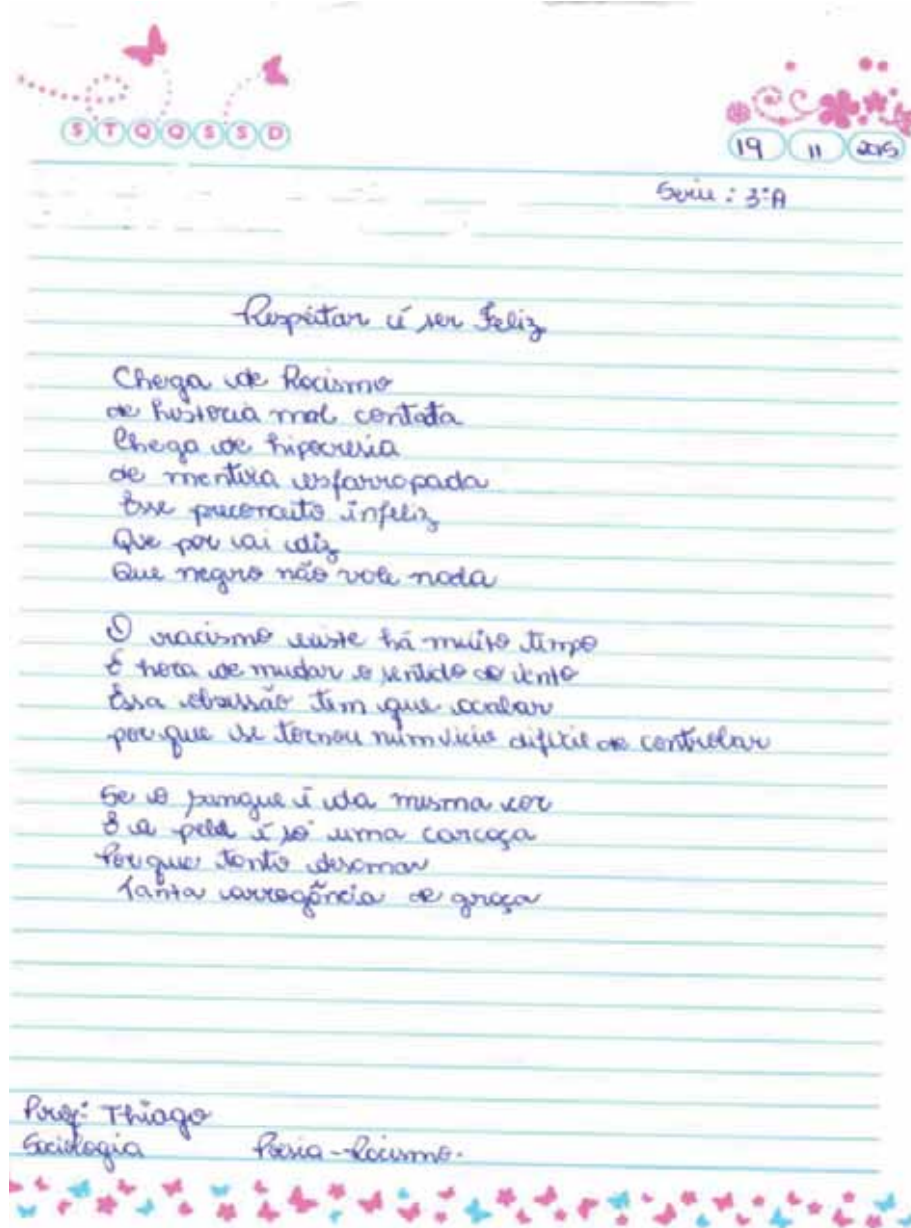 S T Q Q S S D
19 11 2015
Serie : 3ªA
Respeitar é ser Feliz
Chega de Racismo
de historia mal contata
Chega de hipocresia
de mentira esfarropada
Esse preconceito infeliz
Que por ai diz
Que negro não vale nada
O racismo existe há muito tempo
É hora de mudar o sentido do vento
Essa obsessão tem que acabar
por que se tornou num vicio dificil de controlar
Se o sangue é da mesma cor
E a pele é só uma carcaça
Por que tanto desamar
Tanta arrogância de graça
Prof: Thiago
Sociologia Poesia - Racismo.